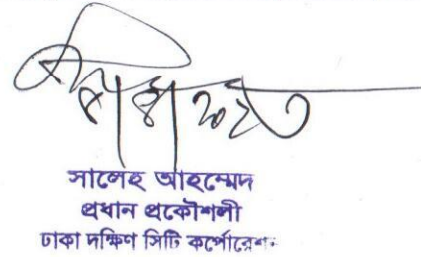 ২০২৩
সালেহ আহম্মেদ
প্রধান প্রকৌশলী
ঢাকা দক্ষিণ সিটি কর্পোরেশন